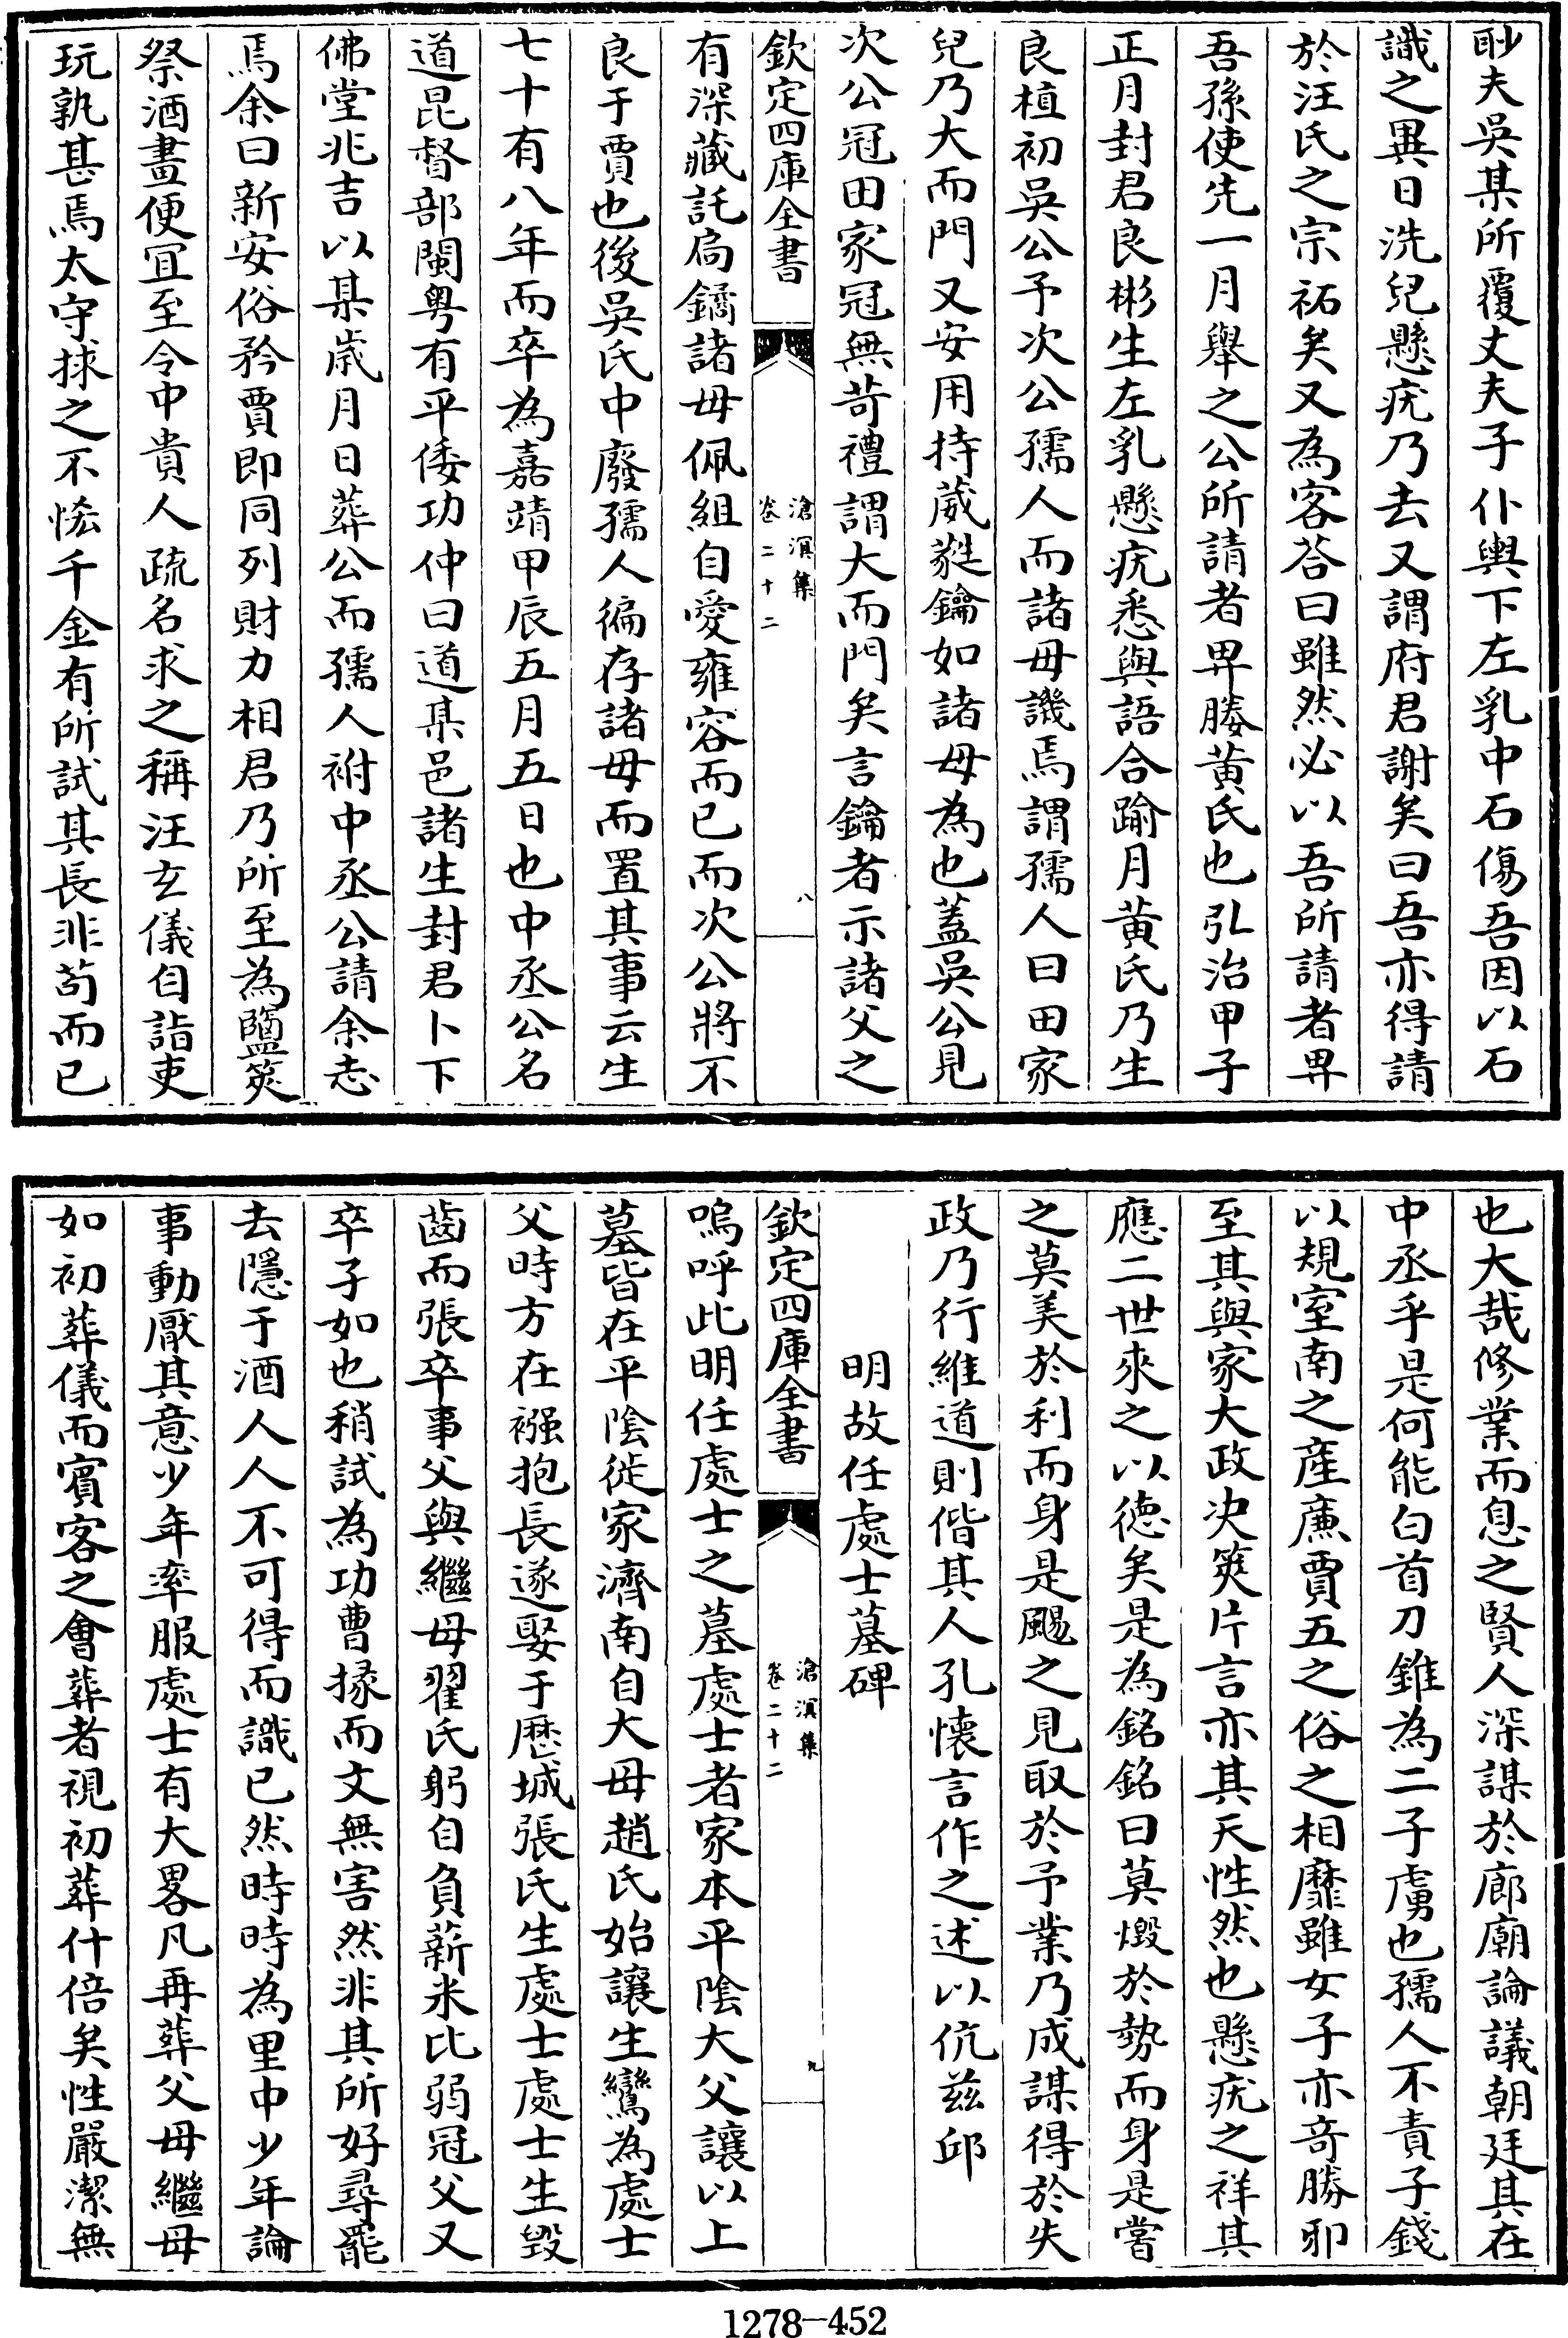 耏夫吳某所覆丈夫子仆輿下左乳中石傷吾因以石
識之異日洗兒懸疣乃去又謂府君謝矣曰吾亦得請
於汪氏之宗祏矣又為客荅曰雖然必以吾所請者畀
吾孫使先一月舉之公所請者畀媵黃氏也弘治甲子
正月封君良彬生左乳懸疣悉與語合踰月黃氏乃生
良植初吳公予次公孺人而諸毋譏焉謂孺人曰田家
兒乃大而門又安用持葳蕤鑰如諸母為也蓋吳公見
次公冠田家冠無苛禮謂大而門矣言鑰者示諸父之
欽定四庫全書
滄溟集
卷二十二
八
有深藏託扃鐍諸母佩組自愛雍容而已而次公將不
良于賈也後吳氏中廢孺人徧存諸母而置其事云生
七十有八年而卒為嘉靖甲辰五月五日也中丞公名
道昆督部閩粤有平倭功仲曰道某邑諸生封君卜下
佛堂兆吉以某歲月日葬公而孺人祔中丞公請余志
焉余曰新安俗矜賈即同列財力相君乃所至為鹽筴
祭酒畫便宜至令中貴人疏名求之稱汪玄儀自詣吏
玩孰甚焉太守捄之不惉千金有所試其長非苟而已
也大哉修業而息之賢人深謀於廊廟論議朝廷其在
中丞乎是何能白首刀錐為二子虜也孺人不責子錢
以規室南之產廉賈五之俗之相靡雖女子亦竒勝邪
至其與家大政決筴片言亦其天性然也懸疣之祥其
應二世來之以德矣是為銘銘曰莫燬於勢而身是嘗
之莫美於利而身是颺之見取於予業乃成謀得於失
政乃行維道則偕其人孔懷言作之述以伉茲邱
明故任處士墓碑
欽定四庫全書
滄溟集
卷二十二
九
嗚呼此明任處士之墓處士者家本平隂大父讓以上
墓皆在平隂徙家濟南自大母趙氏始讓生鸞為處士
父時方在襁抱長遂娶于歷城張氏生處士處士生毀
齒而張卒事父與繼母翟氏躬自負薪米比弱冠父又
卒子如也稍試為功曹掾而文無害然非其所好尋罷
去隱于酒人人不可得而識已然時時為里中少年論
事動厭其意少年率服處士有大畧凡再葬父母繼母
如初葬儀而賓客之會葬者視初葬什倍矣性嚴潔無
1278—452